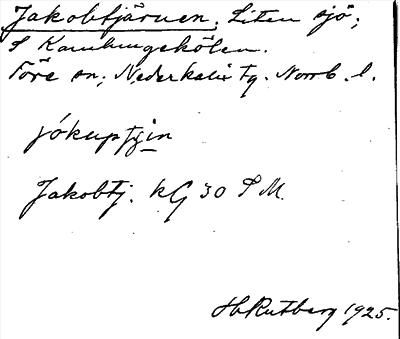 Jakobtjärnen. Liten sjö;
S Kamlungekölen.
Töre sn; Nederkalix tg. Norrb. l.
jókuptjin
Jakobtj. kG 30 S M.
Hb Rutberg 1925.